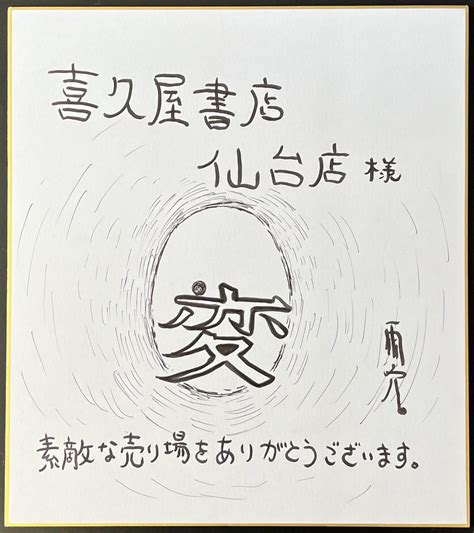 喜久屋書店
仙台店様
変
雨穴
素敵な売り場をありがとうございます。